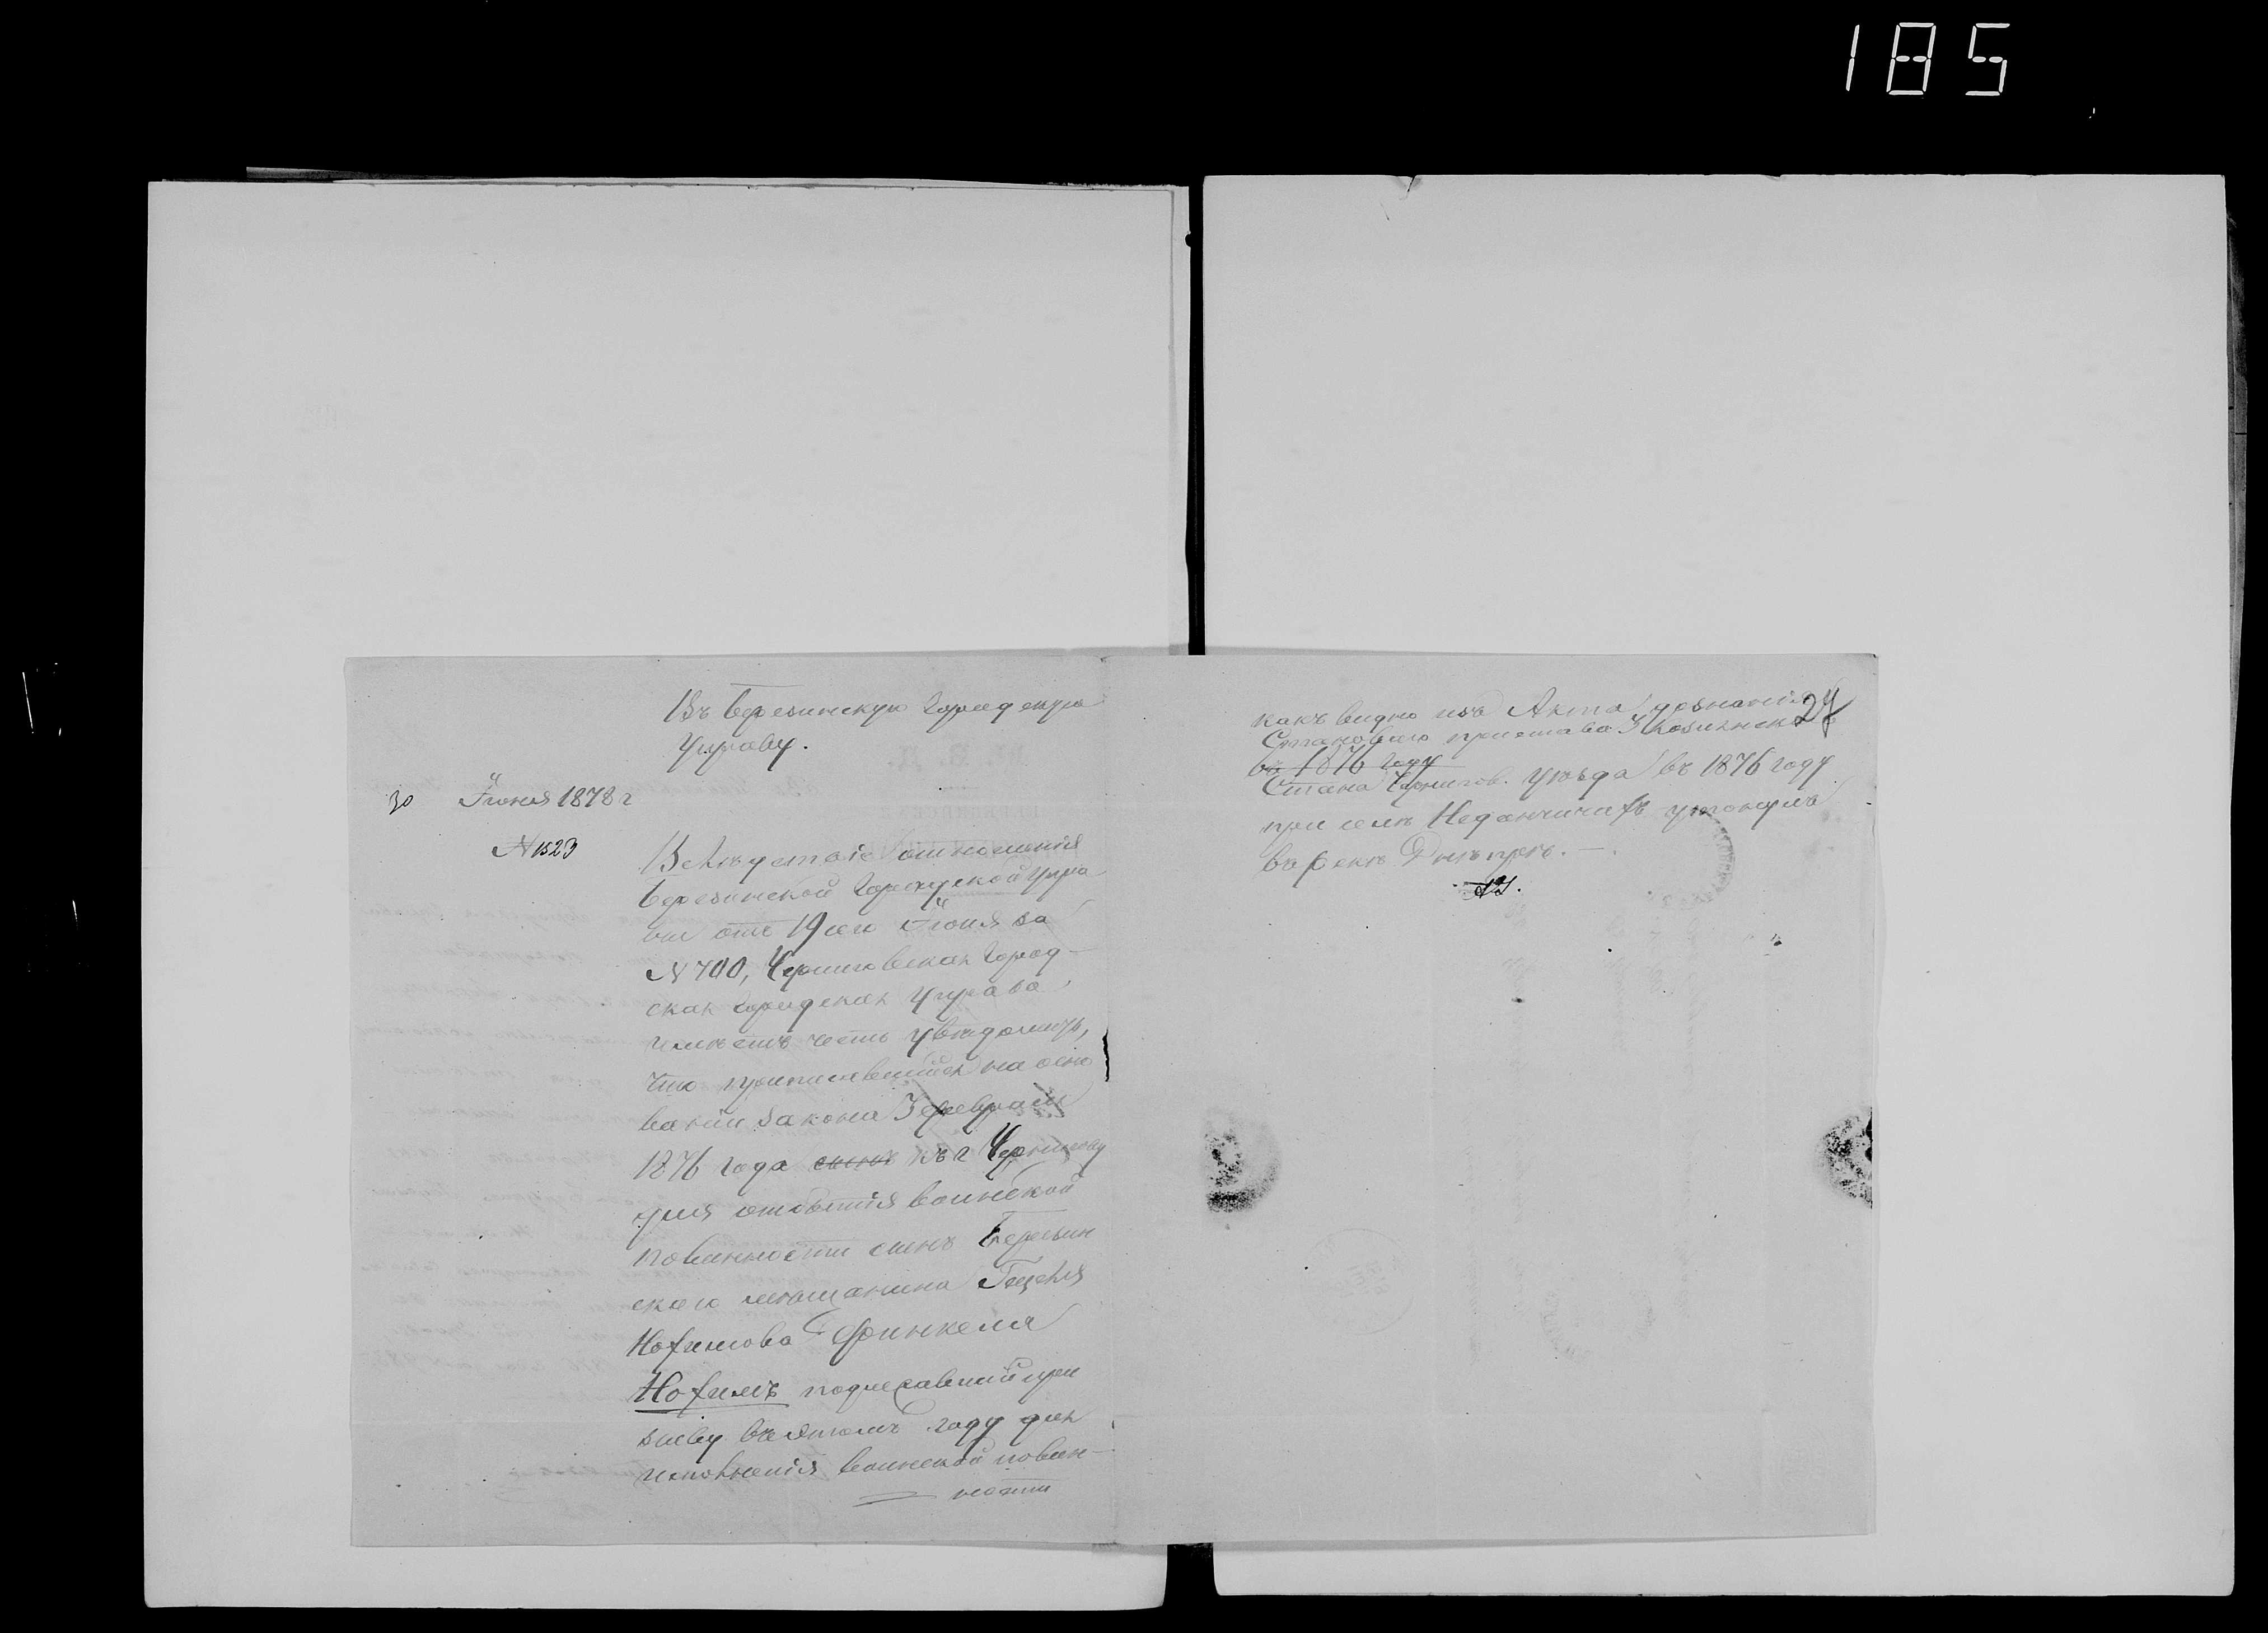 185
Въ Березинскую Городскую
Управу.
30 Іюня 1878 г
№ 1523
Вслѣдствіе отношенія
Березинской Городской Упра
вы отъ 19 сего Іюня за
№ 700, Черниговская Город-
ская Городская Управа
имѣетъ честь увѣдомить,
что приписавшійся на осно
ваніи закона 3 Февраля
1876 года сынъ къ г Чернигову
для отбытія воинской
повинности сынъ Березин
скаго мѣщанина Гецеля
Нохимова Финкеля
Нохимъ подлежавшій при
зыву въ этомъ году для
исполненія воинской повин-
ности
какъ видно изъ Акта дознанія 27
Становаго пристава
въ 1876 году
Стана Чернигов. уѣзда въ 1876 году
при селѣ Неданчичахъ утонулъ
въ рекѣ Днѣпрѣ. —.